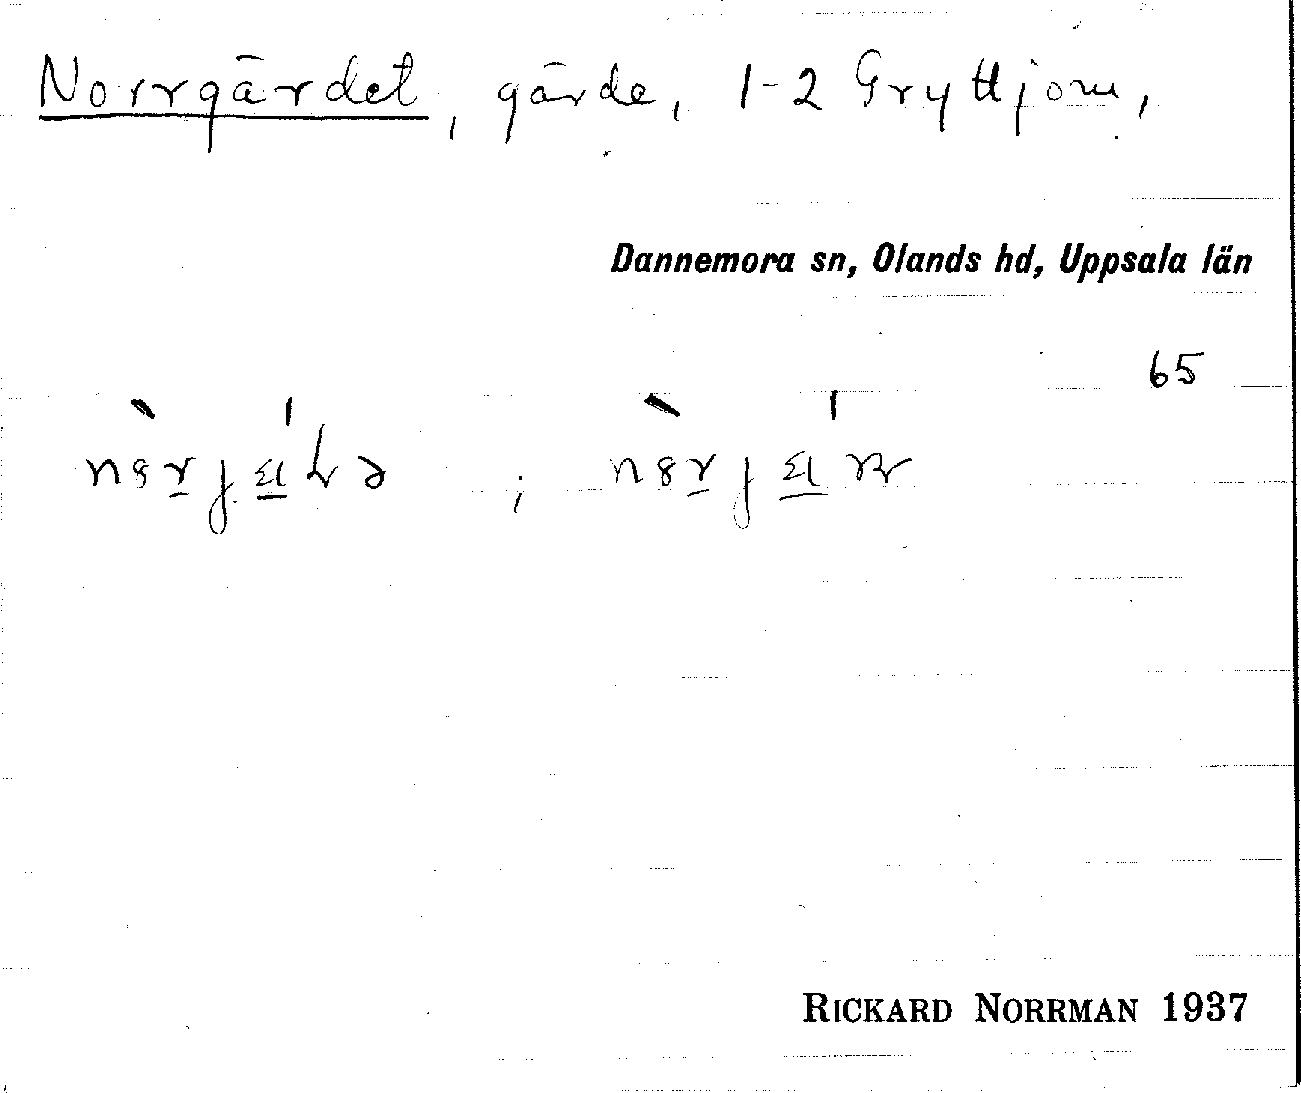 Norrgärdet, gärde, 1-2 Gryttjom,
Dannemora sn, Olands hd, Uppsala län
65
RICKARD NORRMAN 1937